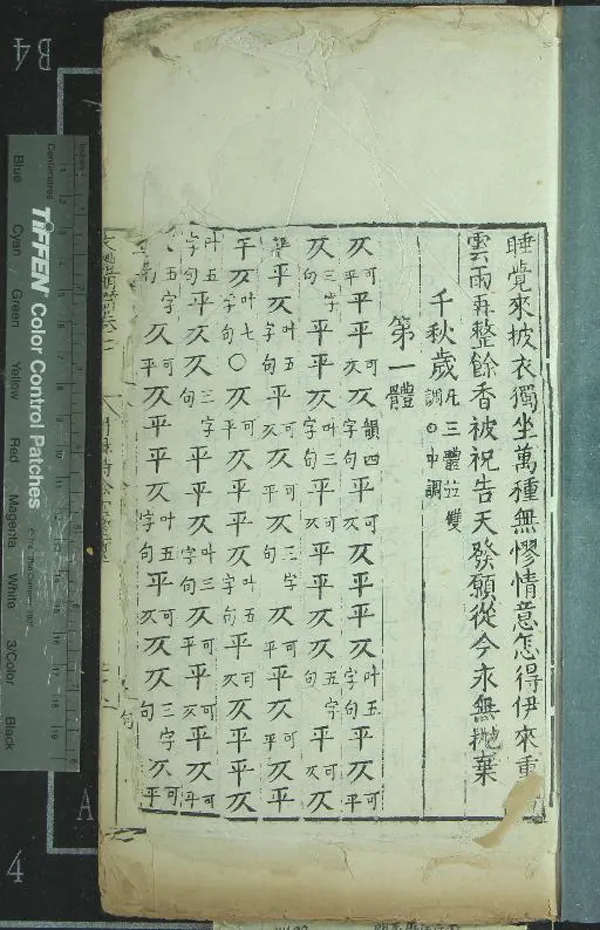 睡覺來披衣獨坐萬種無憀情意怎得伊來重
雲雨再整餘香被祝告天發願從今永無拋棄
千秋歲凡三體並雙調〇中調
第一體
仄可平平平可仄仄韻四字句平可仄仄平平仄叶五字句平仄可平
仄三字句平平仄叶三字句平可仄平仄仄仄五字句平可仄仄
平仄叶五字句平可仄平仄可平三字句仄可平平仄可平仄平
平仄叶七字句〇仄可平仄平平仄叶五字句平可仄仄平平仄
叶五字句平仄仄三字句平平仄叶三字句仄可平平仄可平平仄可平
五字句仄可平仄平平仄叶五字句平可仄仄仄三字句仄可平
句
TIFFEN Color Control Patches
Centimetres
Blue Cyan Green Yellow Red Magenta White 3/Color Black
B4
A
4